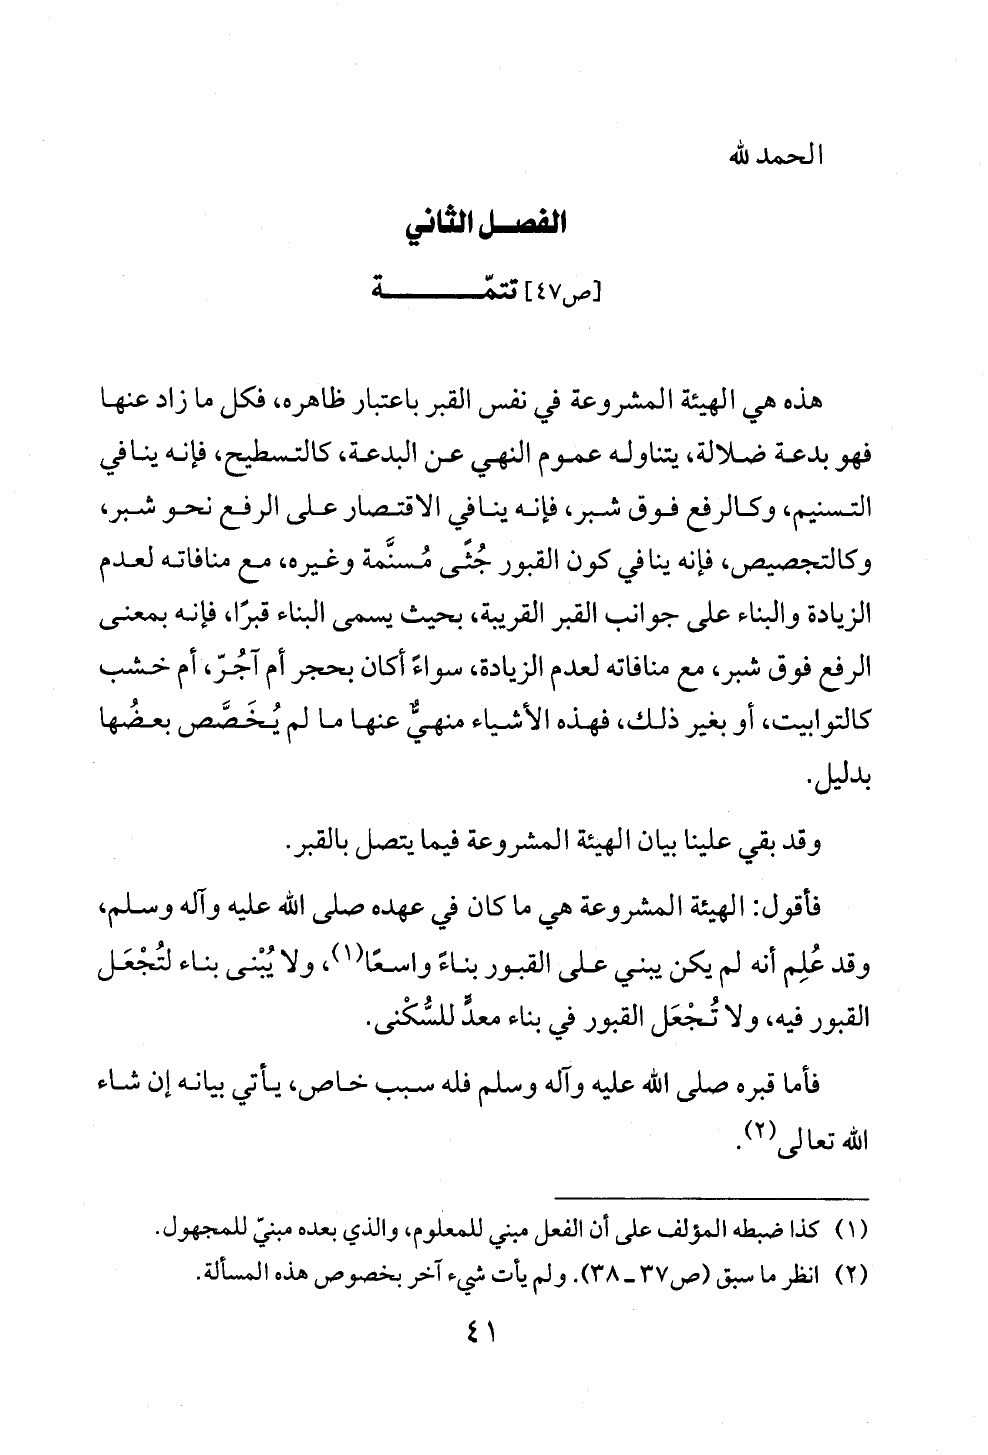 الحمد لله
الفصل الثاني
[ص٤٧] تتمّة
هذه هي الهيئة المشروعة في نفس القبر باعتبار ظاهره، فكل ما زاد عنها
فهو بدعة ضلالة، يتناوله عموم النهي عن البدعة، كالتسطيح، فإنه ينافي
التسنيم، وكالرفع فوق شبر، فإنه ينافي الاقتصار على الرفع نحو شبر،
وكالتجصيص، فإنه ينافي كون القبور جُثًى مُسنَّمة وغيره، مع منافاته لعدم
الزيادة والبناء على جوانب القبر القريبة، بحيث يسمى البناء قبرًا، فإنه بمعنى
الرفع فوق شبر، مع منافاته لعدم الزيادة، سواءً أكان بحجر أم آجُرّ، أم خشب
كالتوابيت، أو بغير ذلك، فهذه الأشياء منهيٌّ عنها ما لم يُخَصَّص بعضُها
بدليل.
وقد بقي علينا بيان الهيئة المشروعة فيما يتصل بالقبر.
فأقول: الهيئة المشروعة هي ما كان في عهده صلى الله عليه وآله وسلم،
وقد عُلِم أنه لم يكن يبني على القبور بناءً واسعًا(١)، ولا يُبْنى بناء لتُجْعَل
القبور فيه، ولا تُجْعَل القبور في بناء معدٍّ للسُّكْنى.
فأما قبره صلى الله عليه وآله وسلم فله سبب خاص، يأتي بيانه إن شاء
الله تعالى(٢).
(١) كذا ضبطه المؤلف على أن الفعل مبني للمعلوم، والذي بعده مبنيّ للمجهول.
(٢) انظر ما سبق (ص٣٧ـ٣٨). ولم يأت شيء آخر بخصوص هذه المسألة.
٤١